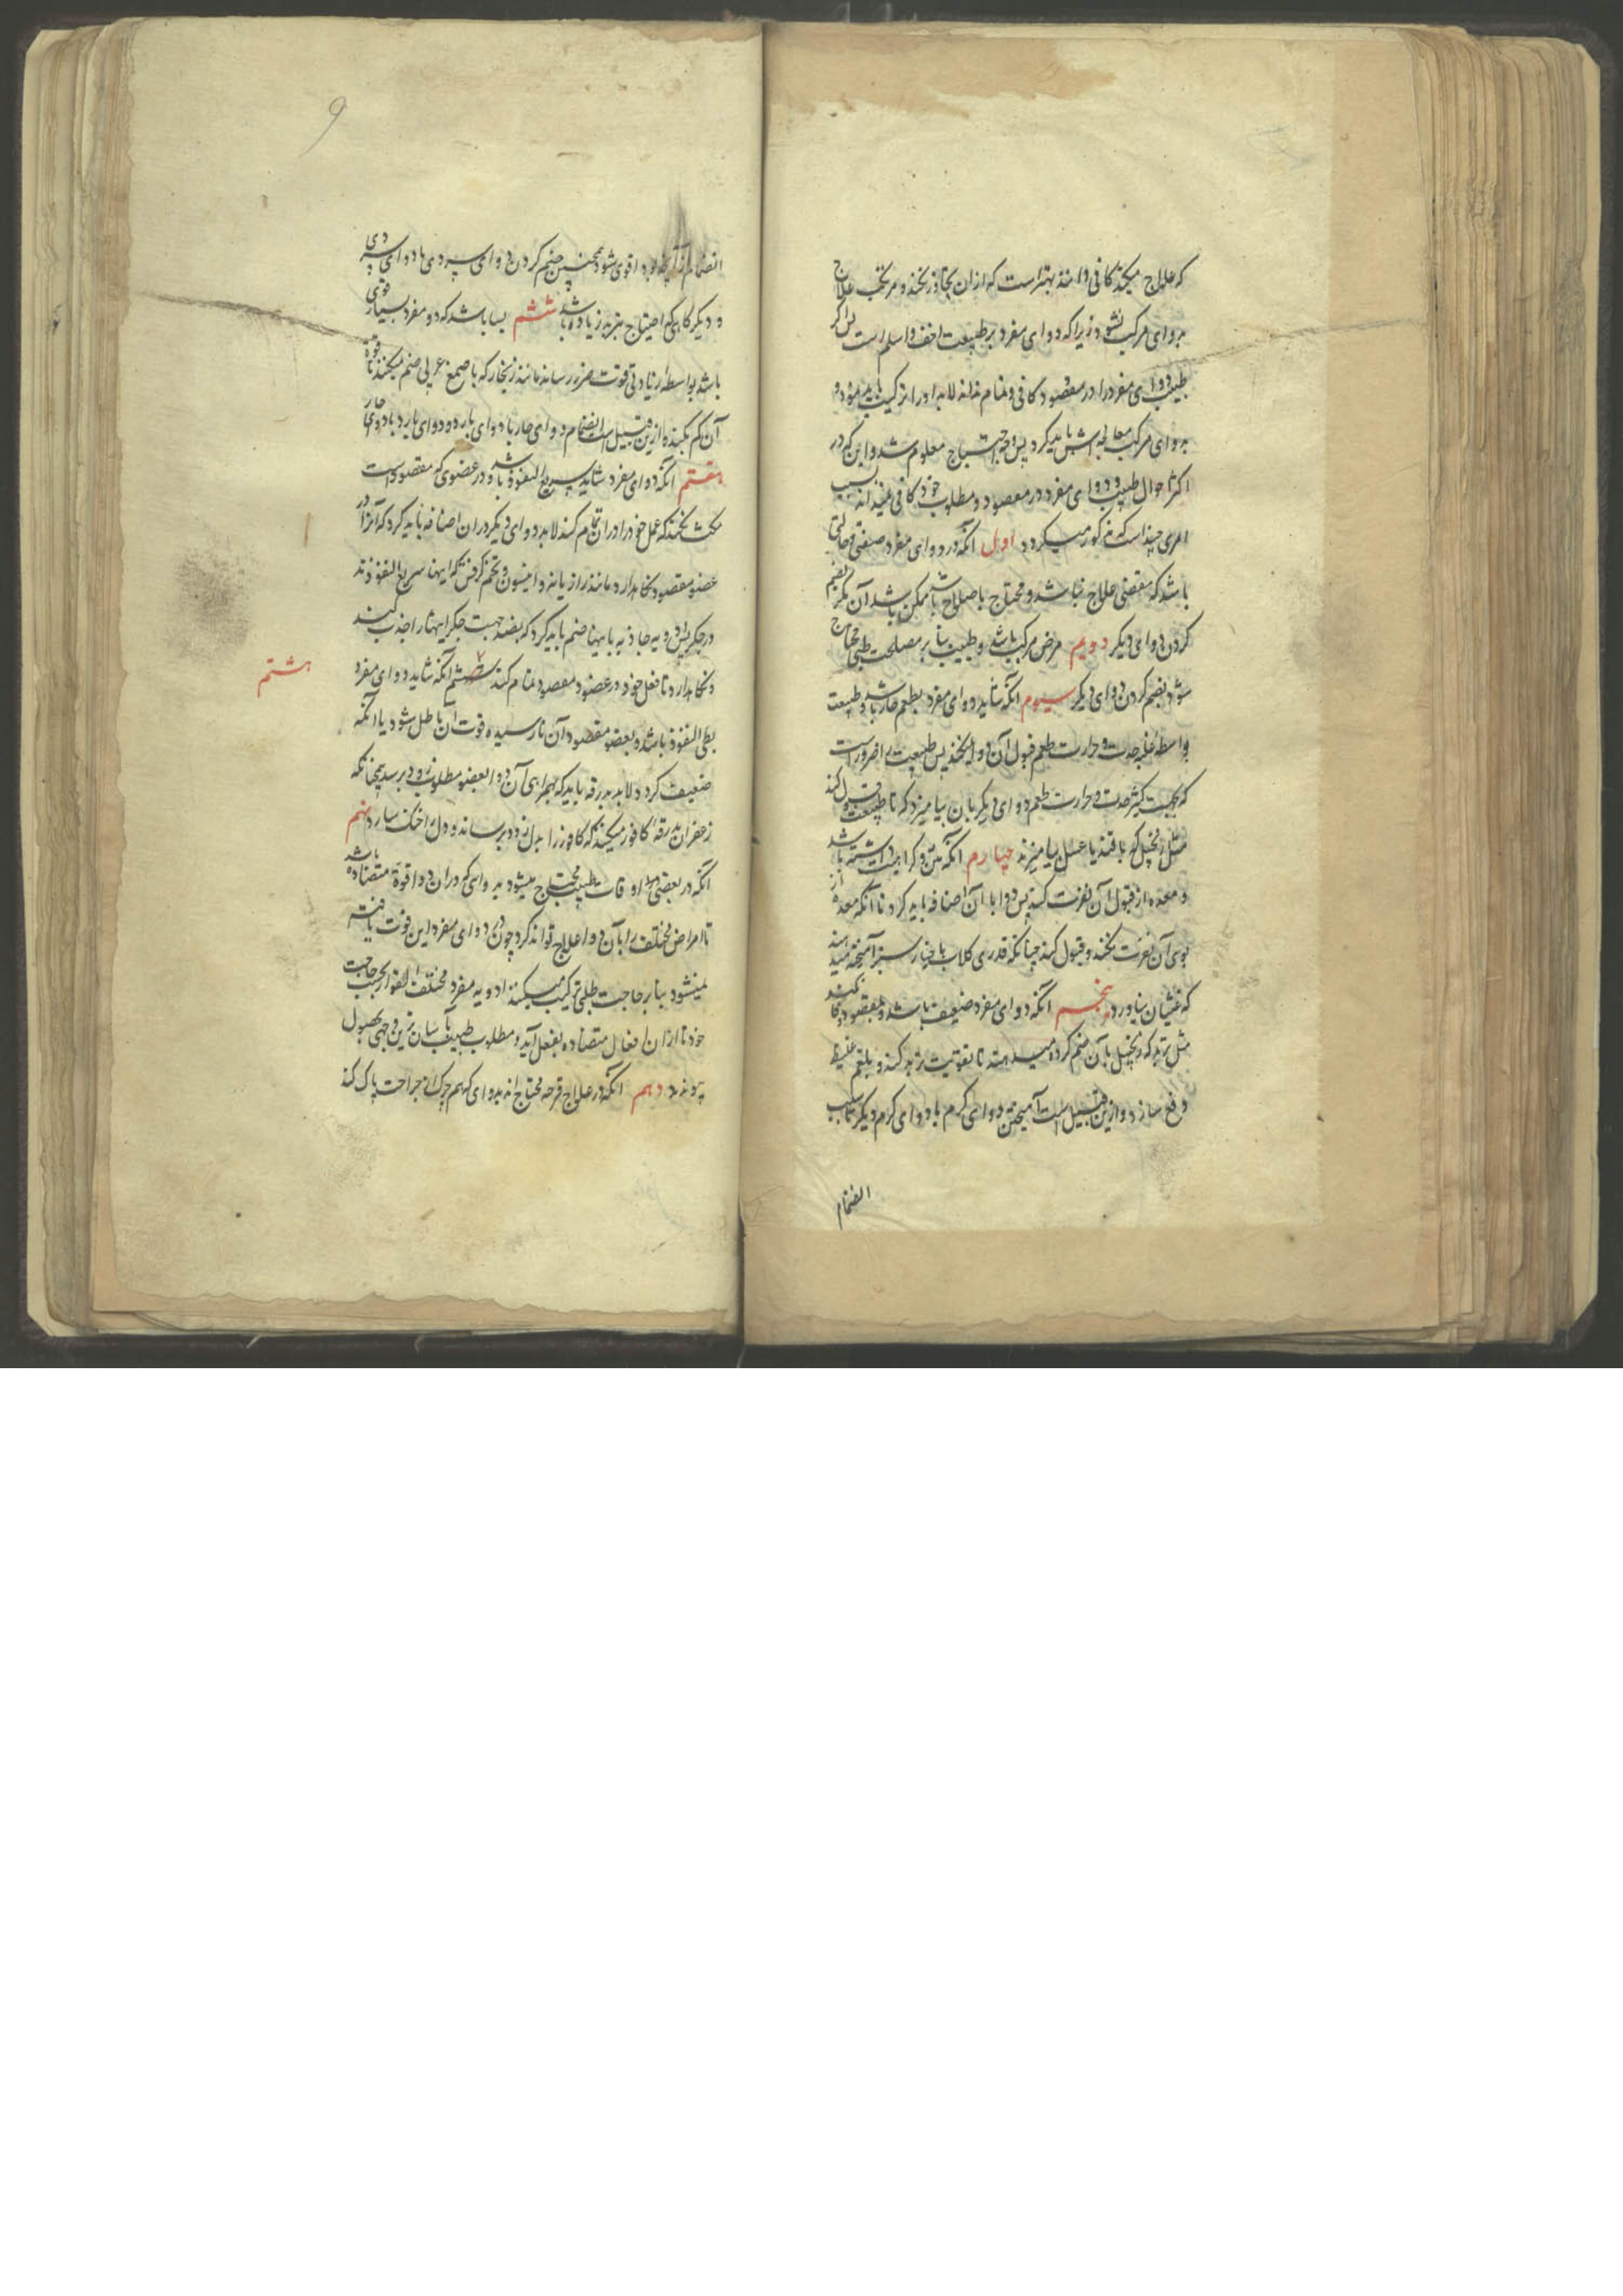 که علاج میکند کافی دانند بهتر است که ازان تجاوز نکند و مرتکب علاج
بدوای مرکب نشود زیرا که دوای مفرد بر طبیعت اخف و اسلم است پس اگر
طبیب دوای مفرد را در مقصود کافی و تمام نداند لابد او را ترکیب باید نمود و
بدوای مرکب معالجه اش باید کرد پس وجه احتیاج معلوم شد و این که در
اکثر احوال طبیب دوای مفرد در مقصود و مطلوب خود کافی نمیداند بسبب
امری چند است که مذکور میکردد اول آنکه در دوای مفرد صفتی و حالتی
باشد که مقتضی علاج نباشد و محتاج باصلاح باشد ممکن نباشد آن مکر بضم
کردن دوای دیکر دویم مرض مرکب باشد و طبیب بنابر مصلحت طبی محتاج
شود بضم کردن دوای دیکر سیوم آنکه شاید دوای مفرد بطعم حار باشد و طبیعت
بواسطه غلبه حدت و حرارت طعم قبول آن دوا نکند پس طبیب را ضرور است
که بجهت کسر حدت و حرارت طعم دوای دیکر بان بیامیزد که تا طبیعت قبول کند
مثل زنجبیل که با قند یا عسل بیامیزند چهارم آنکه نتن و کراهیت داشته باشد
و معده از قبول آن نفرت کند پس دوا با آن اضافه باید کرد تا آنکه معده از
بوی آن نفرت نکند و قبول کند چنانکه قدری کلاب با خیار سبز آمیخته میدهند
که غثیان نیاورد پنجم آنکه دوای مفرد ضعیف باشد و بمقصود وفا نکند
مثل تربد که زنجبیل با آن ضم کرده میدهند تا تقویت تربد کند و بلغم غلیظ
دفع سازد و ازین قبیل است آمیختن دوای کرم با دوای کرم دیکر تا بسبب
انضمام
9
انضمام از آنچه بود اقوی شود همچنین ضم کردن دوای سردی با دوای سردی
و دیکر کاهی که احتیاج بتبرید زیاده باشد ششم بسا باشد که دو مفرد بسیار قوی
باشد بواسطه زیادتی قوت ضرر رساند مانند زنجار که با صمغ عربی ضم میکنند تا قوة
آن کم بکند و ازین قبیل است انضمام دوای حار با دوای بارد و دوای بارد با دوای حار
هفتم آنکه دوای مفرد شاید سریع النفوذ باشد و در عضوی که مقصود است
مکث نکند که عمل خود را دران تمام کند لابد دوای دیکر دران اضافه باید کرد که آنرا در
عضو مقصود نکاهدارد مانند رازیانه و انیسون و تخم کرفس که اینها سریع النفوذند
در جکر پس ادویه جاذبه با اینها ضم باید کرد که بضد جهت جکر اینها را جذب کند
و نکاهدارد تا فعل خود در عضو مقصود تمام کند ششم آنکه شاید دوای مفرد
هشتم
بطی النفوذ باشد و بعضو مقصود آن نارسیده قوت آن باطل شود یا آنکه
ضعیف کردد لابد بدرقه باید که بهمراهی آن دوا بعضو مطلوب زود برسد چنانکه
زعفران بدرقه کافور میکنند که کافور را بدل زود برساند و دل را خنک سازد نهم
آنکه در بعضی اوقات طبیب محتاج میشود بدوایی که دران دوا قوة متضاده باشد
تا امراض مختلفه را بآن دوا علاج تواند کرد چون در دوای مفرد این قوت یافته
نمیشود بنابر حاجت طبی ترکیب میکنند ادویه مفرد مختلف القوا را بحسب حاجت
خود تا ازان افعال متضاده بفعل آید و مطلوب طبیب بآسان ترین وجهی بحصول
پیوندد دهم آنکه در علاج قرحه محتاج اند بدوای که هم چرک از جراحت پاک کند